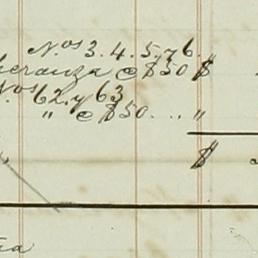 Nos 3. 4. 5. y 6.
eranza @ $50 $
Nos 62. y 63
" @ $50 .... "
$